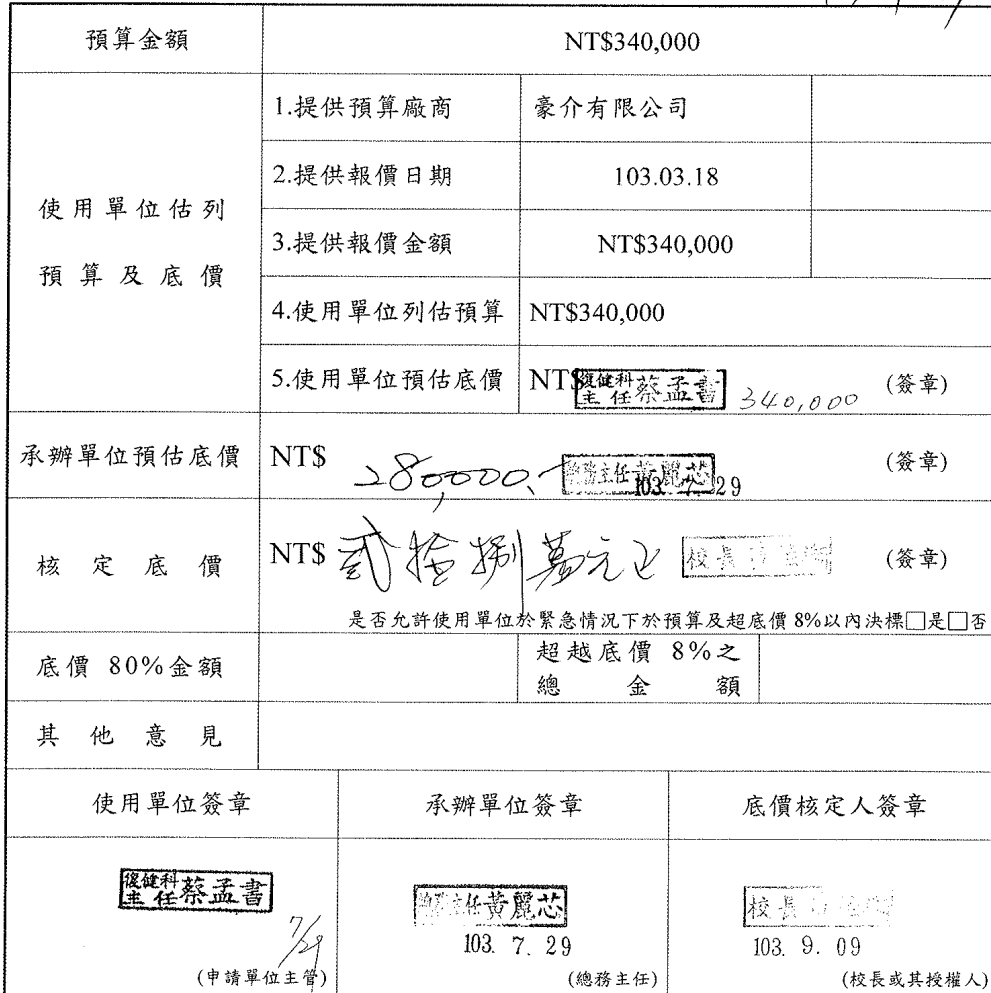 預算金額 NT$340,000
使用單位估列
預算及底價
1.提供預算廠商 豪介有限公司
2.提供報價日期 103.03.18
3.提供報價金額 NT$340,000
4.使用單位列估預算 NT$340,000
5.使用單位預估底價 NT$ 復健科主任 蔡孟書 340,000 (簽章)
承辦單位預估底價 NT$ 280,000.- 總務主任黃麗芯 103. 7. 29 (簽章)
核定底價 NT$ 貳拾捌萬元正 校長 (簽章)
是否允許使用單位於緊急情況下於預算及超底價8%以內決標□是□否
底價 80%金額
超越底價 8%之
總金額
其他意見
使用單位簽章 承辦單位簽章 底價核定人簽章
復健科主任 蔡孟書 總務主任黃麗芯 校長
7/29 103. 7. 29 103. 9. 09
(申請單位主管) (總務主任) (校長或其授權人)